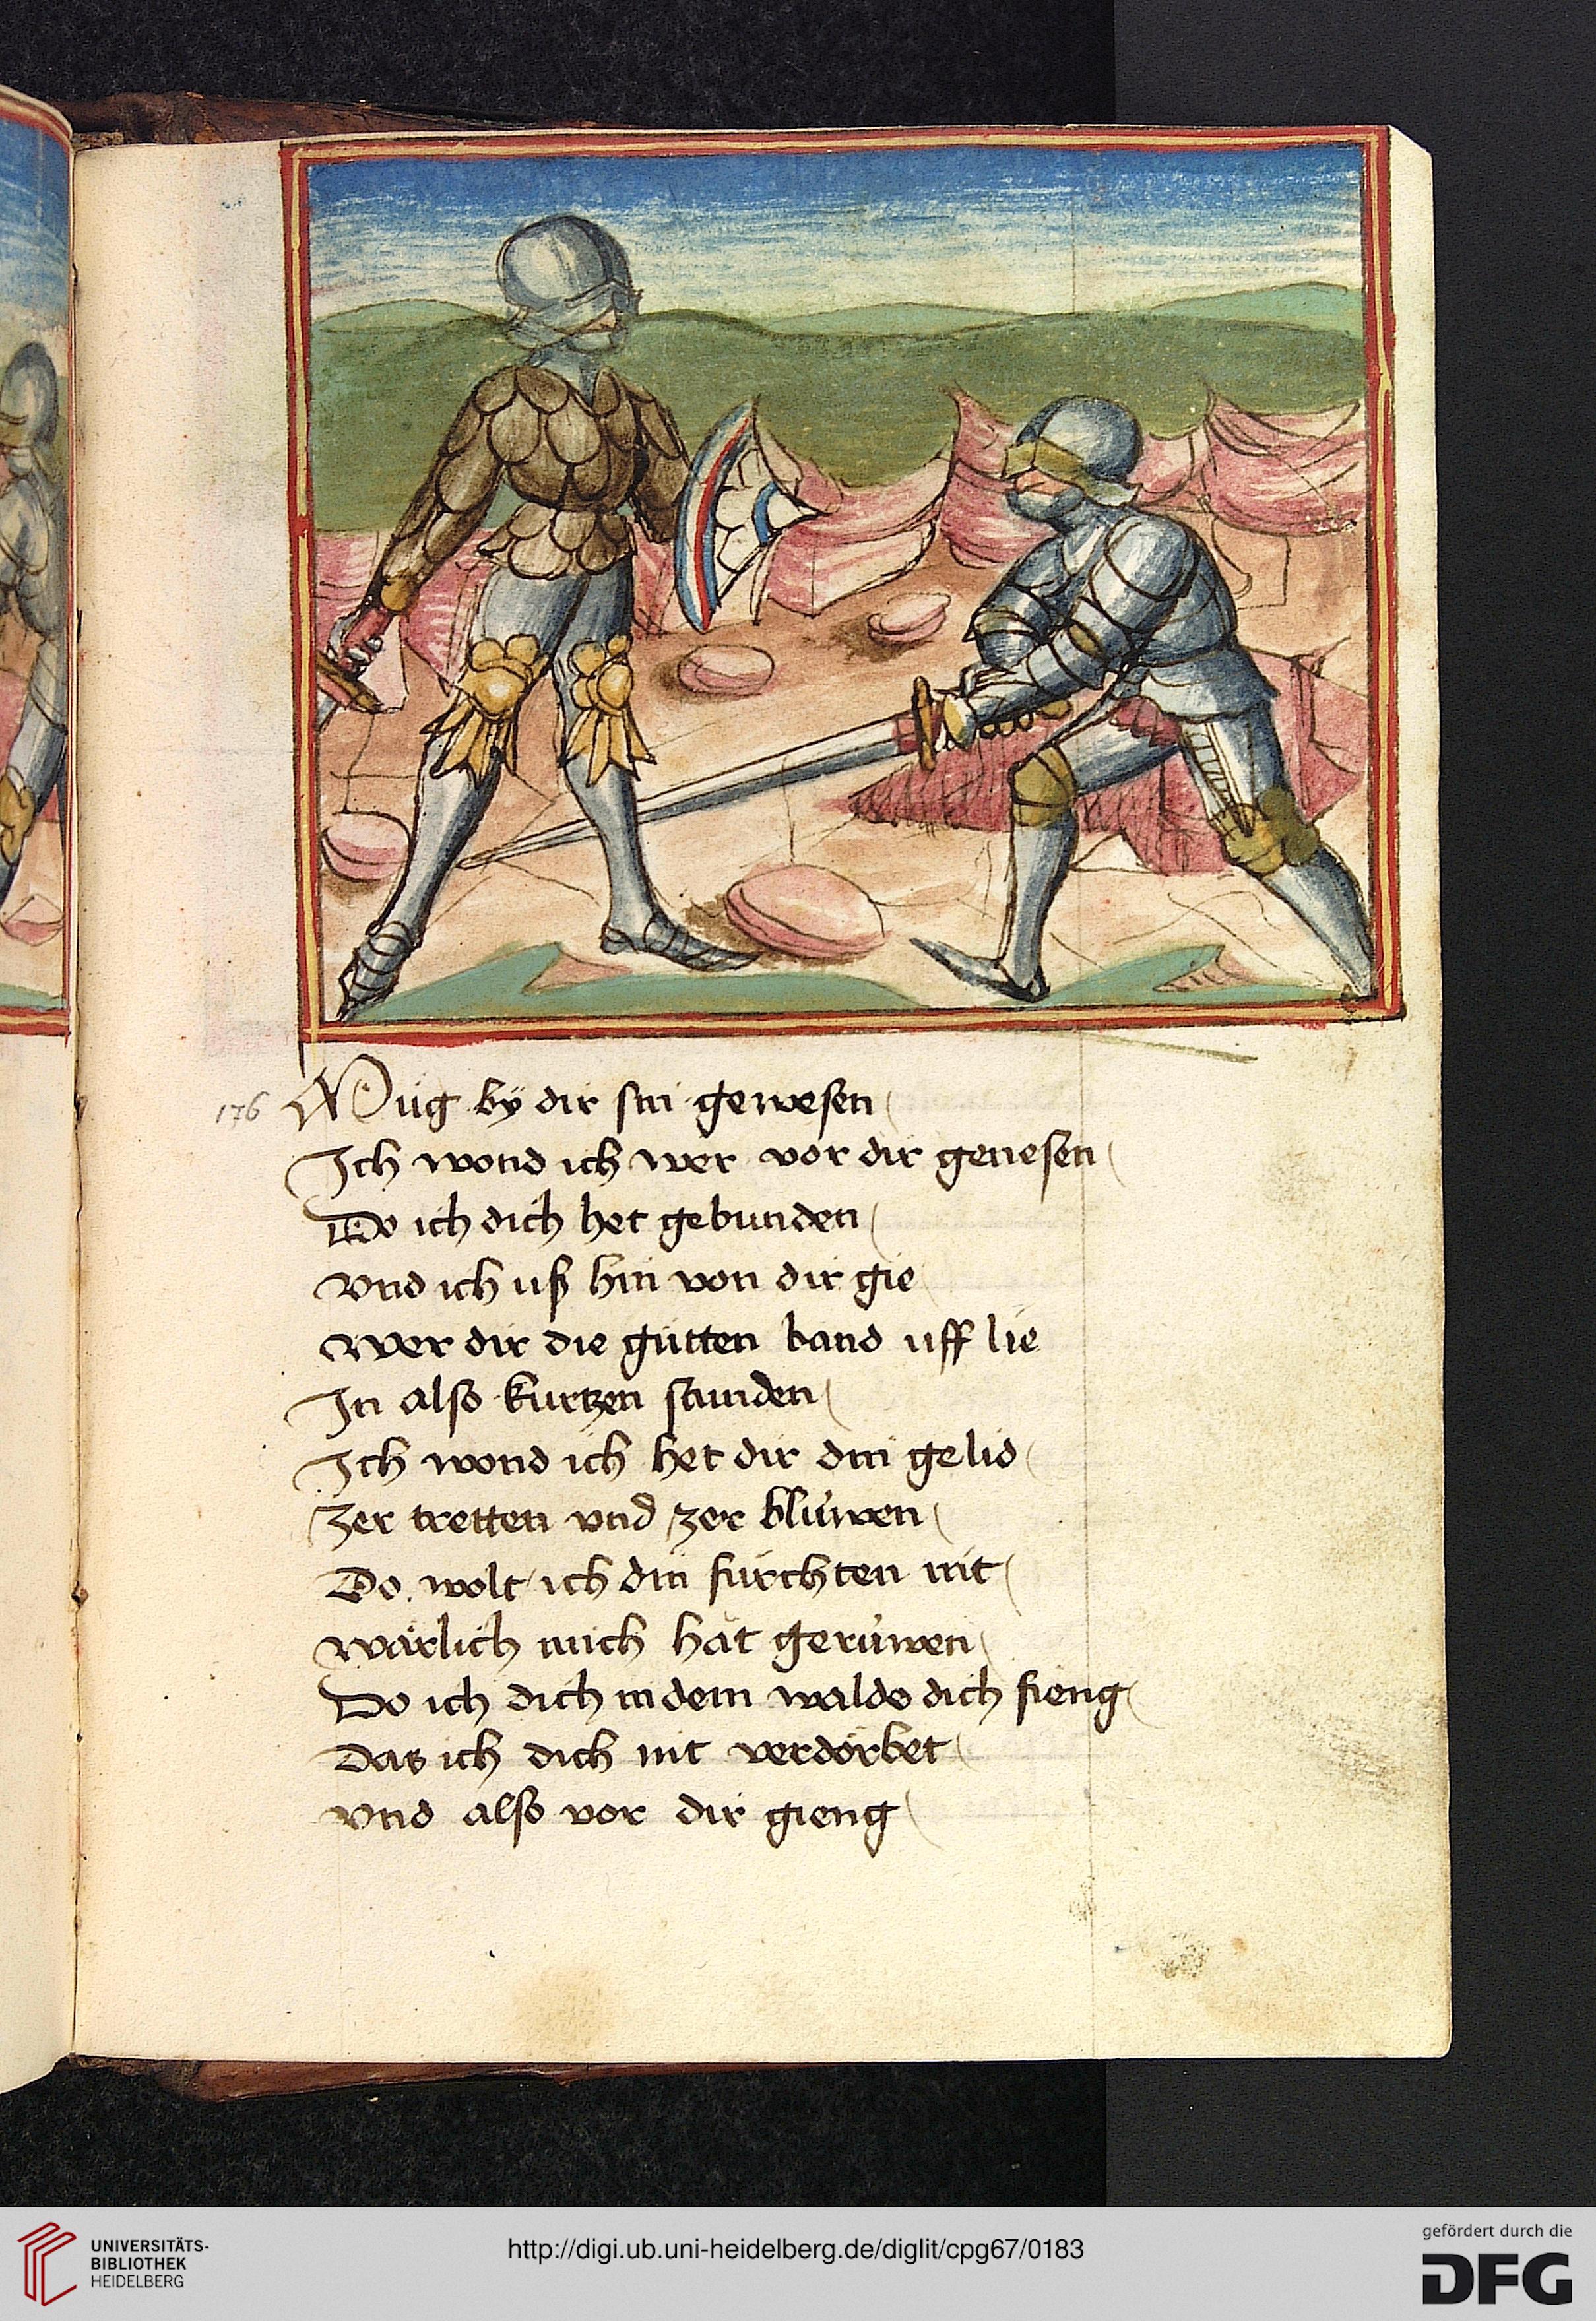 176 Müg by̆ dir sin gewesen
Ich wond ich wer vor dir genesen
Do ich dich het gebunden
Vnd ich uß hin von dir gie
Wer dir die gütten band uff lie
In also kurtzen stunden
Ich wond ich het dir din gelid
Zer tretten vnd zer blüwen
Do wolt ich din fürchten nit
Wärlich mich hät gerüwen
Do ich dich in dem walde dich fieng
Das ich dich nit verdörbet
Vnd also vor dir gieng
UNIVERSITÄTS-
BIBLIOTHEK
HEIDELBERG
http://digi.ub.uni-heidelberg.de/diglit/cpg67/0183
gefördert durch die
DFG